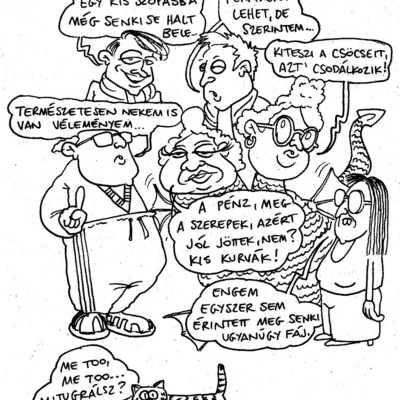 EGY KIS SZOPÁSBA
MÉG SENKI SE HALT
BELE...
LEHET, DE
SZERINTEM...
KITESZI A CSÖCSEIT,
AZT' CSODÁLKOZIK!
TERMÉSZETESEN NEKEM IS
VAN VÉLEMÉNYEM...
A PÉNZ, MEG
A SZEREPEK, AZÉRT
JÓL JÖTTEK, NEM?
KIS KURVÁK!
ENGEM
EGYSZER SEM
ÉRINTETT MEG SENKI
UGYANÚGY FÁJ.
ME TOO,
ME TOO...
MITUGRÁLSZ?